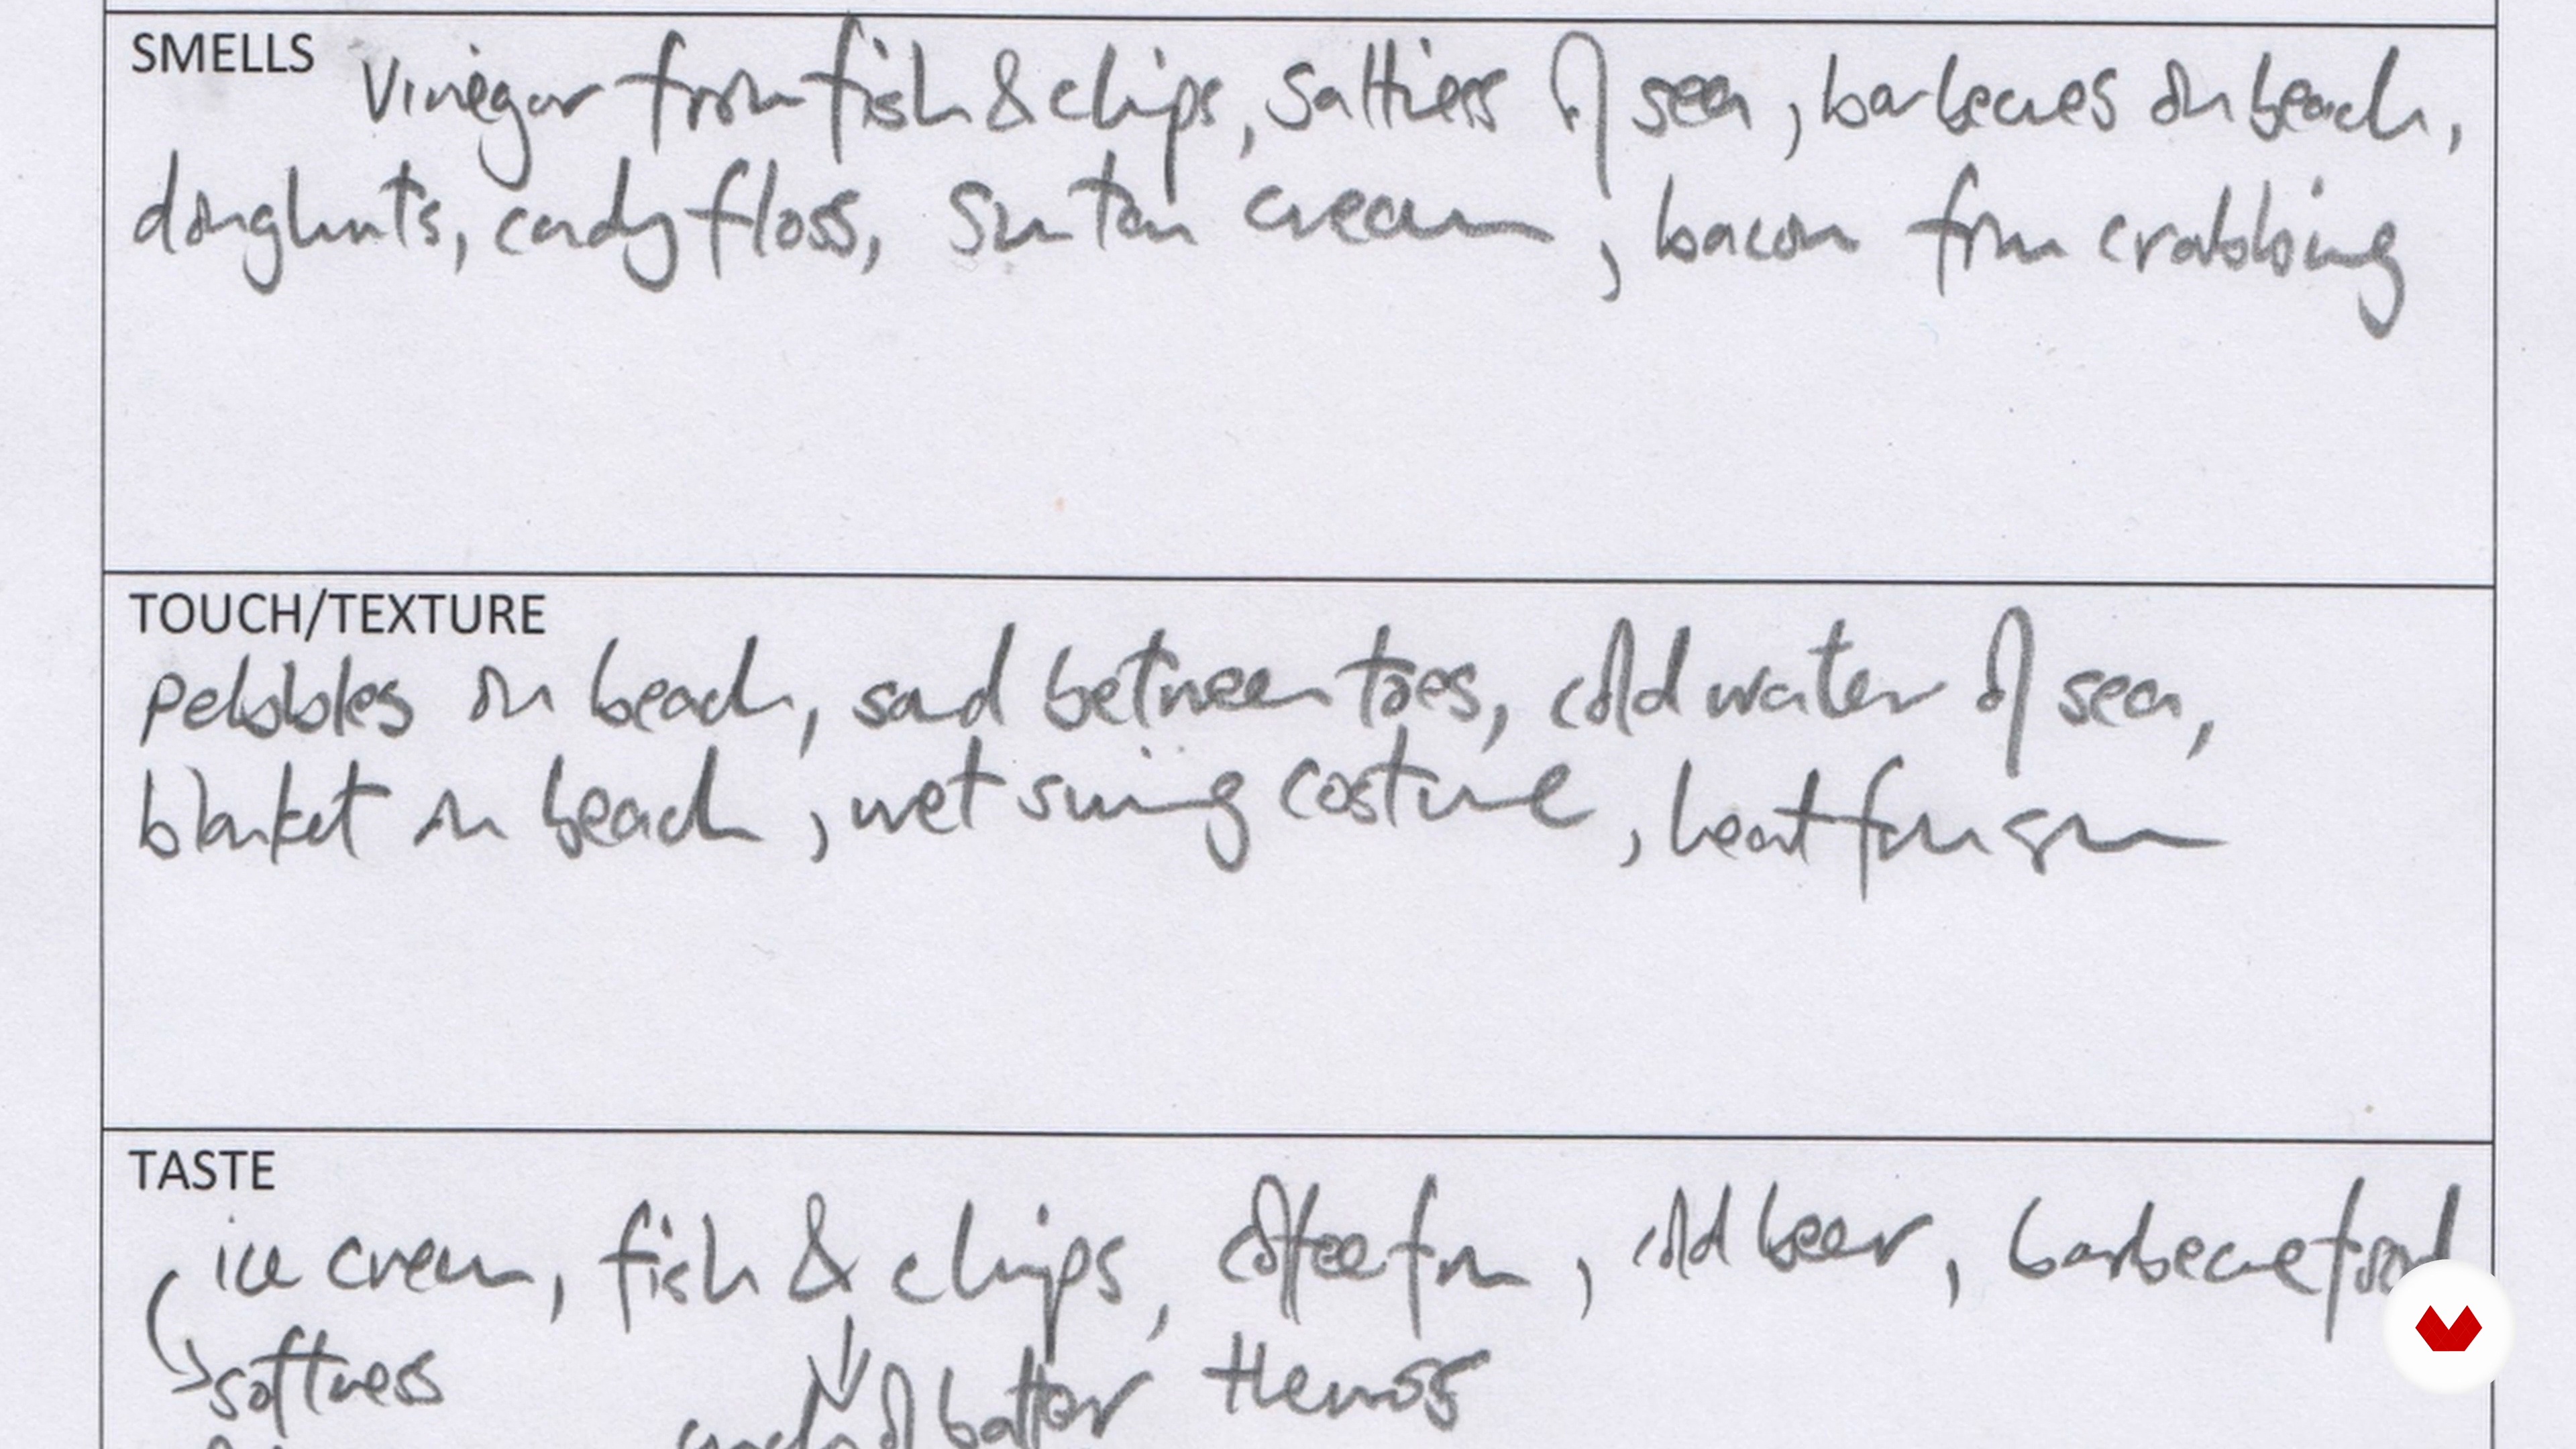 SMELLS Vinegar from fish & chips, saltiness of sea, barbecues on beach,
doughnuts, candy floss, sun tan cream, bacon from crabbing
TOUCH/TEXTURE
pebbles on beach, sand between toes, cold water of sea,
blanket on beach, wet swimming costume, heat from sun
TASTE
ice cream, fish & chips, coffee from, cold beer, barbecue food
softness of batter thermos